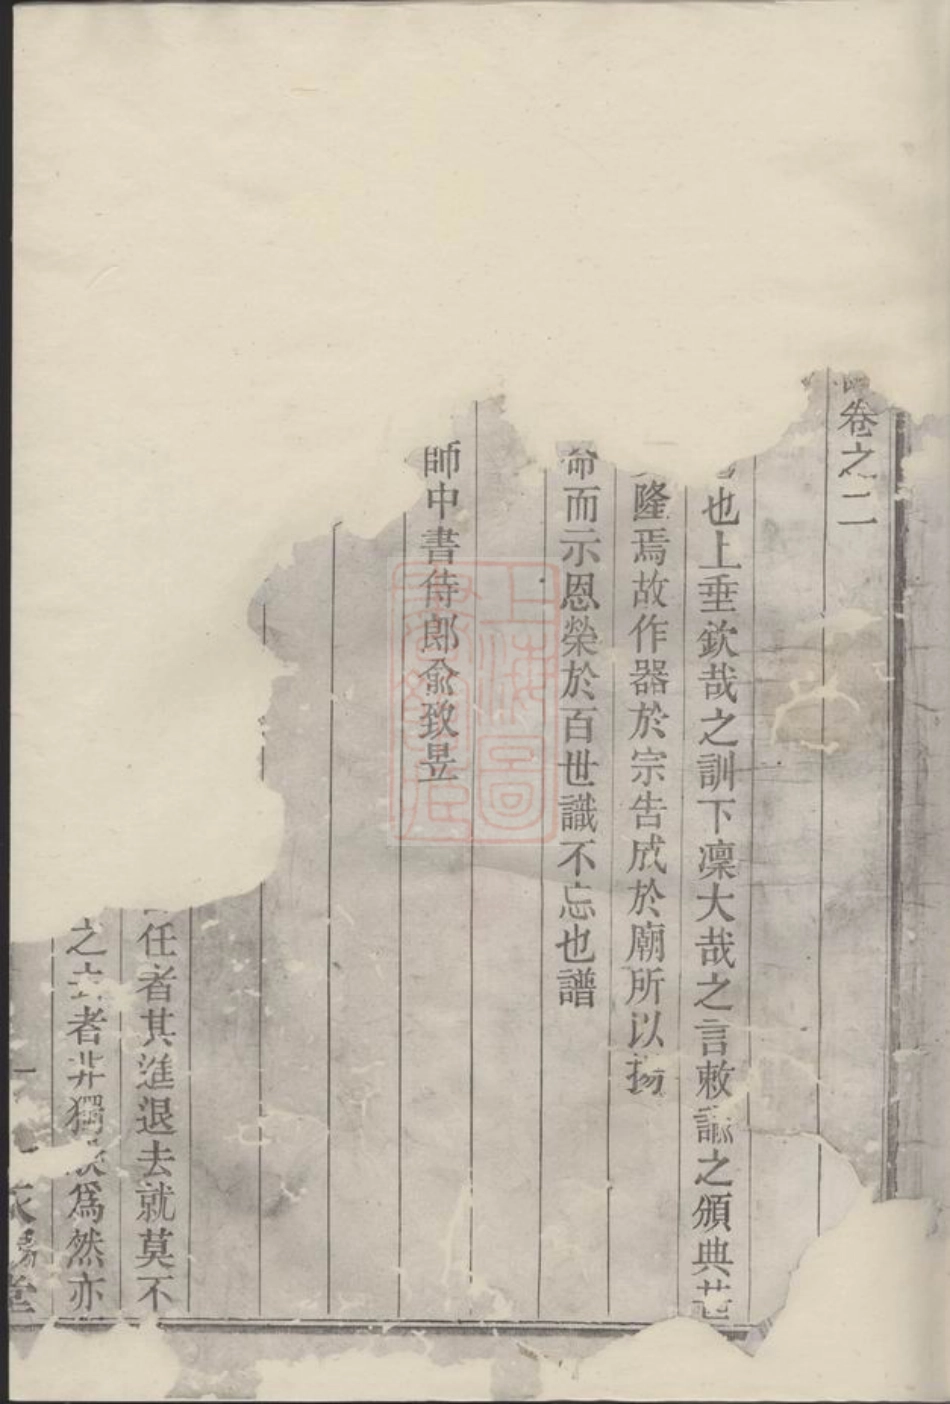 卷之二
也上垂欽哉之訓下凜大哉之言敕諭之頒典
隆焉故作器於宗告成於廟所以揚
命而示恩榮於百世識不忘也譜
師中書侍郎俞致昱
任者其進退去就莫不
之去者非獨爲然亦
堂
上海圖書館